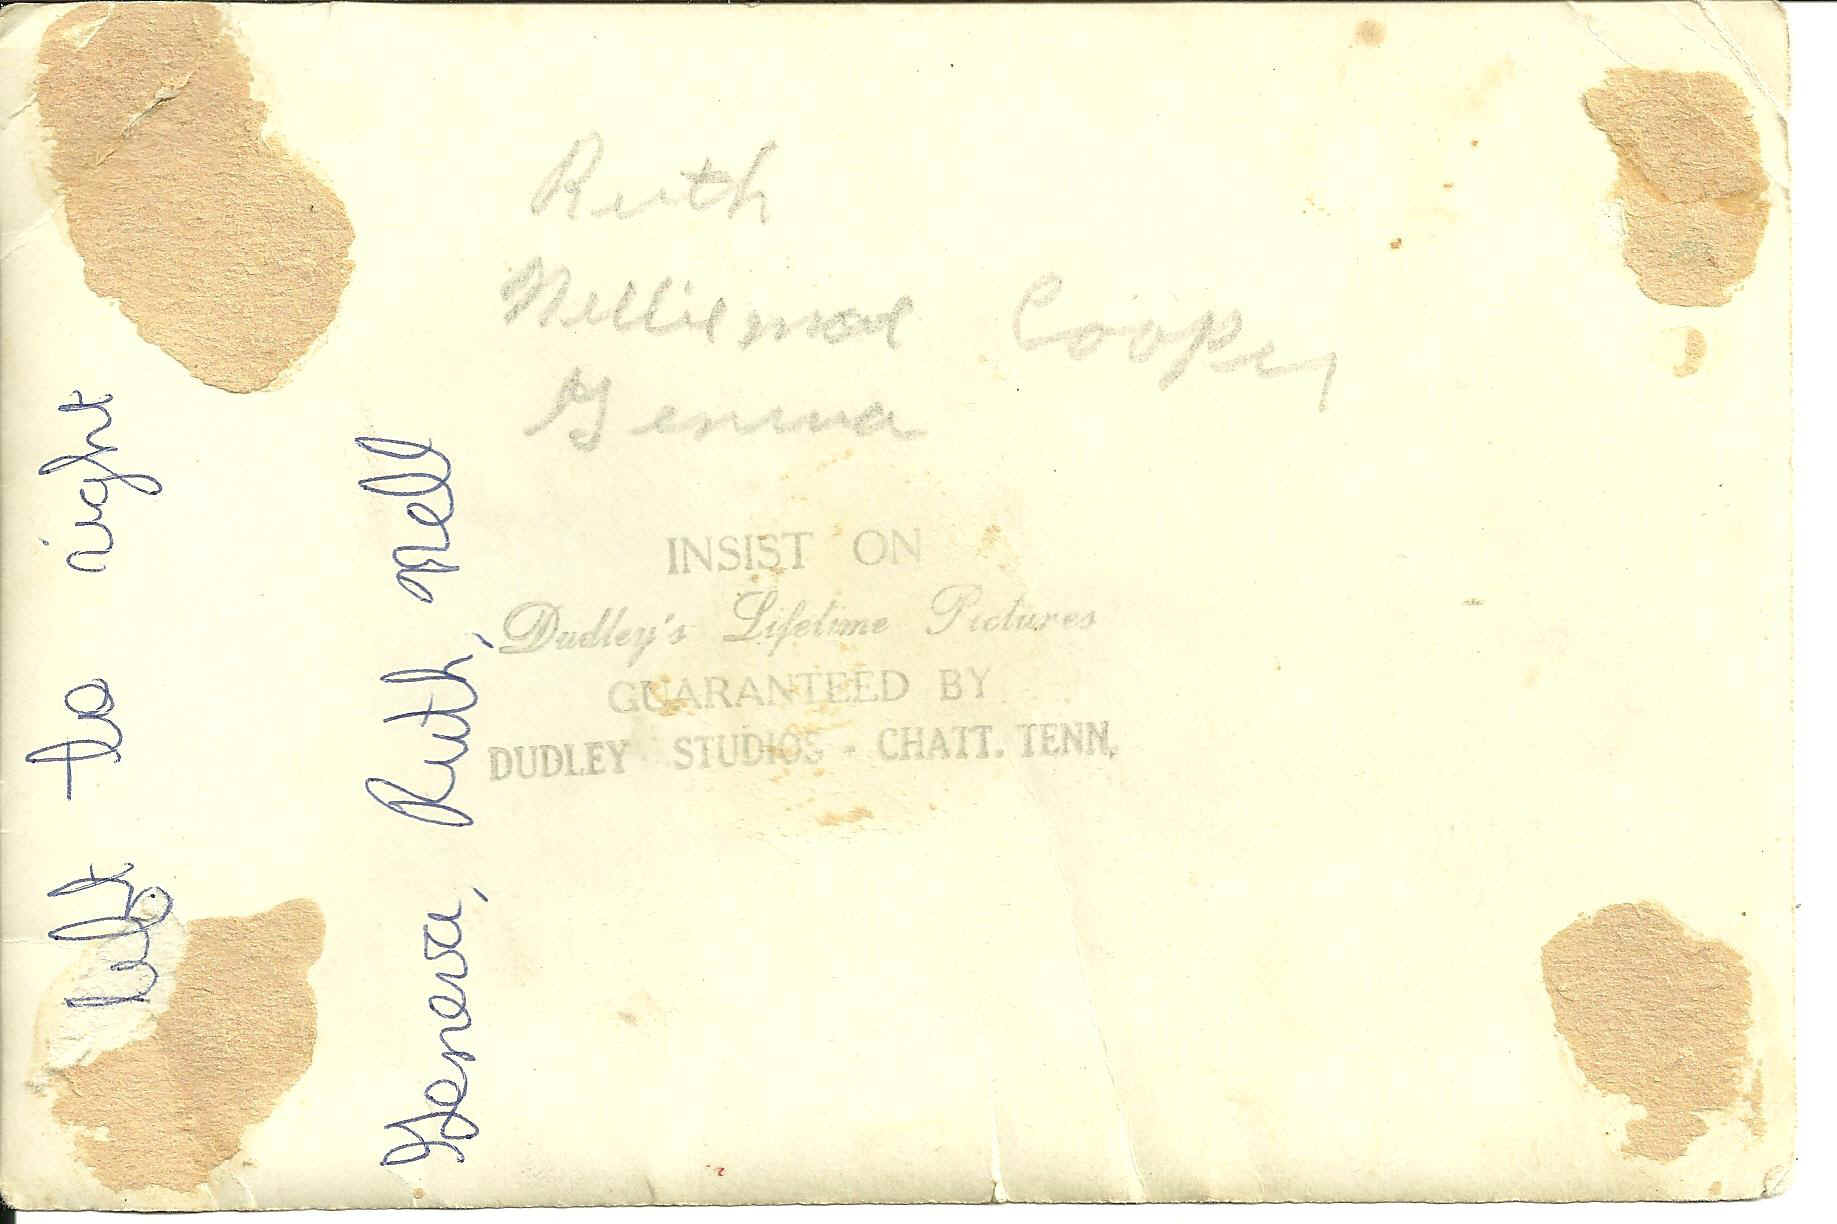 Ruth
Nelliemae Cooper
Geneva
INSIST ON
Dudley's Lifetime Pictures
GUARANTEED BY
DUDLEY STUDIOS - CHATT. TENN.
left to right
Geneva, Ruth, nell